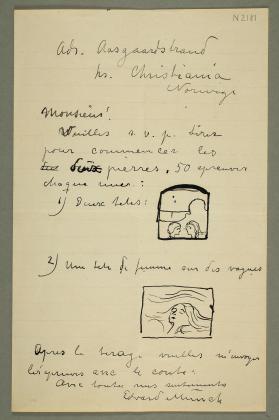 N 2181
Adr. Aasgaardstrand
pr. Christiania
Norwege
Monsieur!
Veuillez s. v. p. tirer
pour commencer les
deux pierres, 50 epreuves
chaque une :
1) Deux tetes:
2) Une tete de femme sur des vagues
Apres le tirage veuillez m'envoyer
les epreuves avec le conto:
Avec toutes mes
Edvard Munch